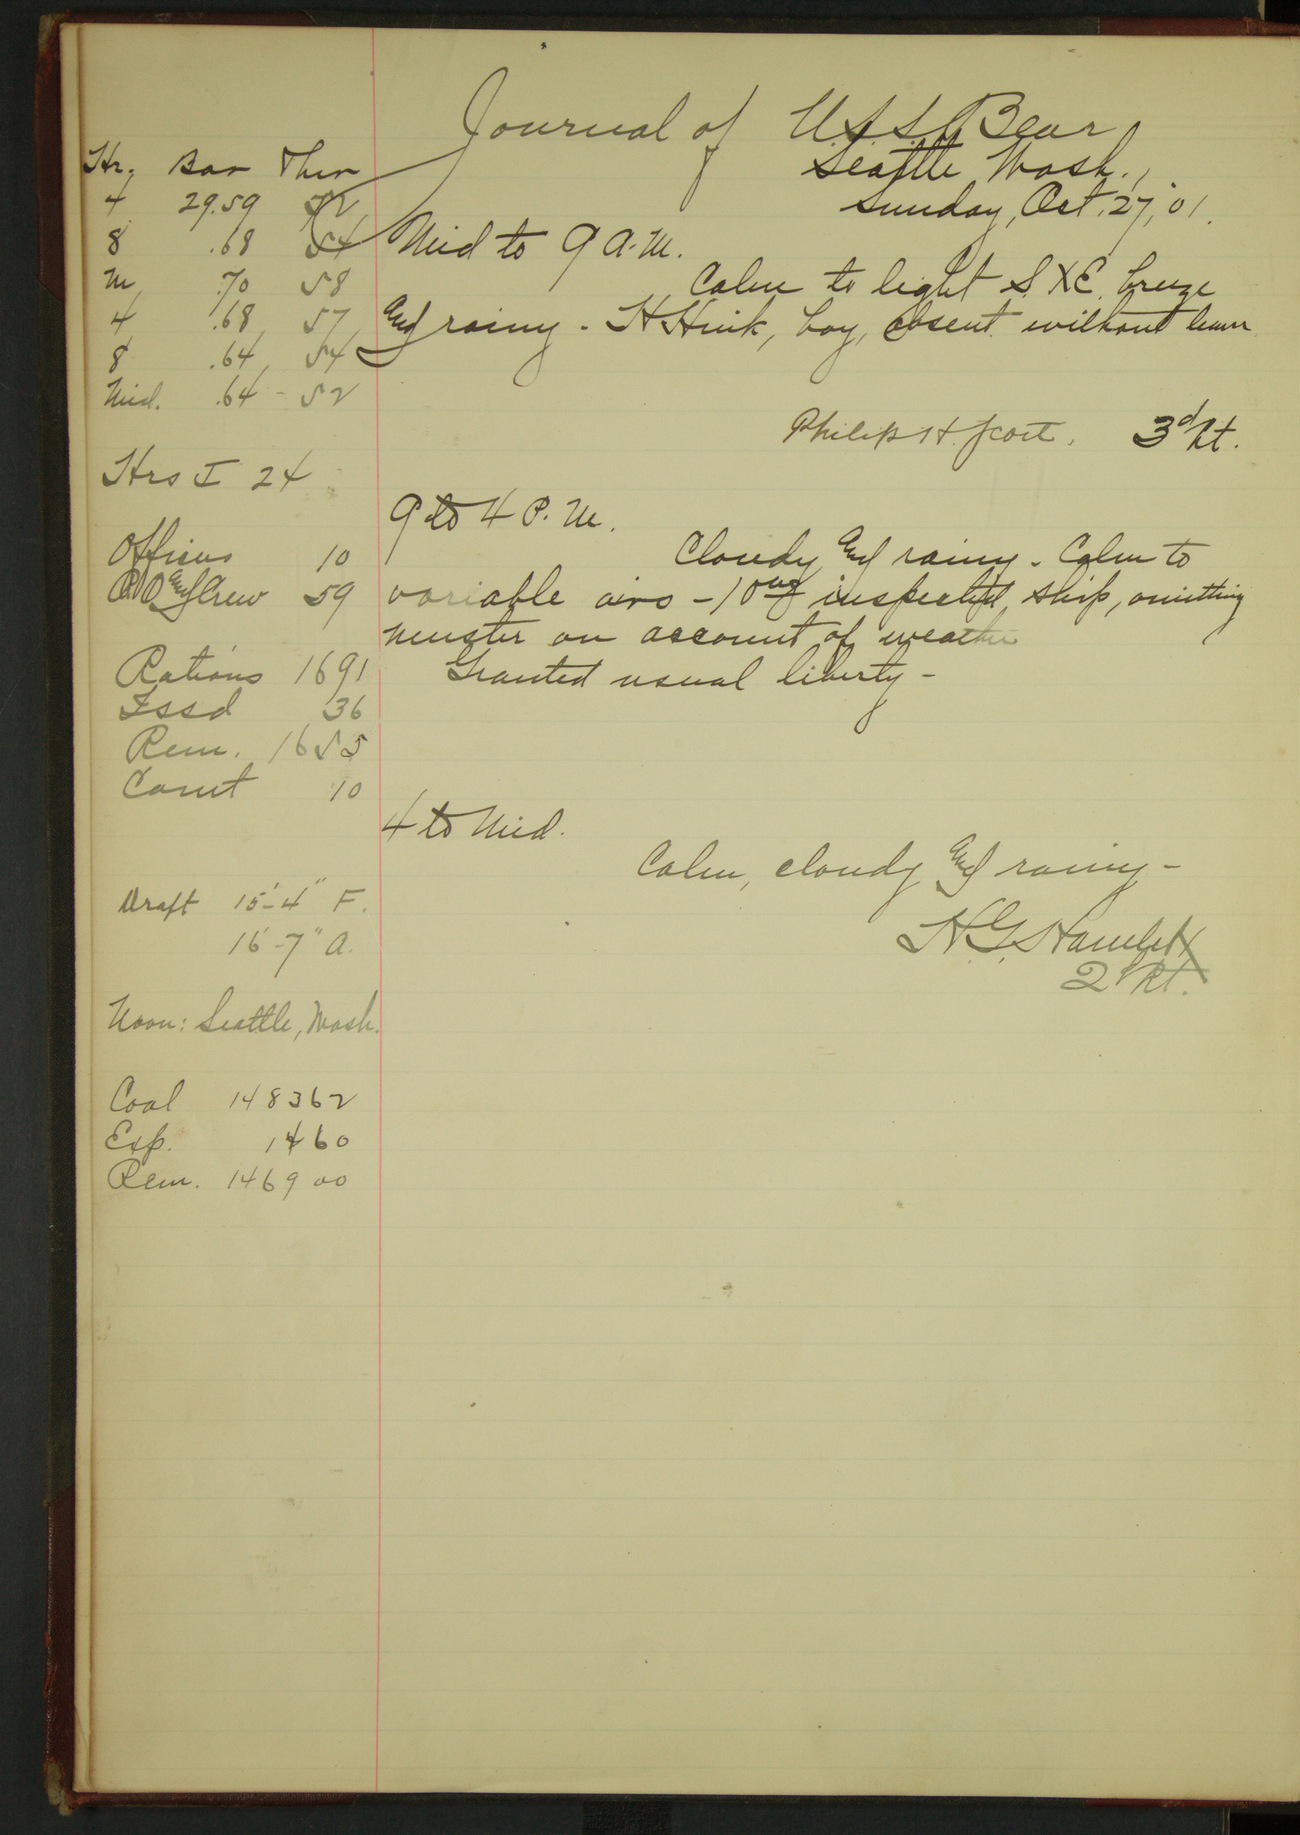 Journal of U.S.S. Bear
Seattle Wash.,
Sunday, Oct. 27, 01.
Hr. Bar Ther
4 29.59 52
8 .68 54
M .70 58
4 .68 57
8 .64 54
Mid. .64 - 52
Hrs I 24
Officers 10
P.O and Crew 59
Rations 1691
Issd 36
Rem. 1655
Comt 10
Draft 15'-4" F.
16'-7" A.
Noon: Seattle, Wash.
Coal 148362
Exp. 1460
Rem. 146900
Mid to 9 A.M.
Calm to light S. X E. breeze
and rainy - H Hink, boy, absent without leave
Philip H. Scott. 3d Lt.
9 to 4 P.M.
Cloudy and rainy - Calm to
variable airs - 10 inspected ship, omitting
muster on account of weather
Granted usual liberty -
4 to Mid.
Calm, cloudy and rainy -
H.G. Hamlet
2d Lt.